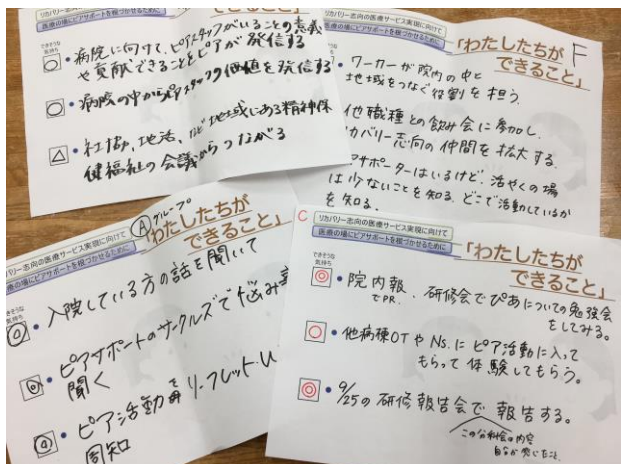 できそうな
気持ち
できること」
○
・病院に向けて、ピアスタッフがいることの意義
や貢献できることをピアが発信する
○
・病院の中からピアスタッフの価値を発信する
△
・社協、地活、など地域にある精神保
健福祉の会議からつながる
リカバリー志向の医療サービス実現に向けて
医療の場にピアサポートを根づかせるために
「わたしたちが
できること」
F
・ワーカーが院内の中と
地域をつなぐ役割を担う。
他職種との飲み会に参加し、
カバリー志向の仲間を拡大する。
アサポーターはいるけど、活やくの場
は少ないことを知る。どこで活動しているか
を知る。
Aグループ
バリー志向の医療サービス実現に向けて
療の場にピアサポートを根づかせるために
「わたしたちが
できること」
できそうな
気持ち
・入院している方の話を聞いて
◎
・ピアサポートのサークルズで悩み
聞く
・ピア活動を リーフレット
周知
C
リカバリー志向の医療サービス実現に向けて
医療の場にピアサポートを根づかせるために
「わたしたちが
できること」
できそうな
気持ち
◎
・院内報でPR、研修会でぴあについての勉強会
をしてみる。
○
・他病棟OTやNs.にピア活動に入って
もらって体験してもらう。
◎
・9/25の研修報告会で報告する。
この分科会の内容
自分が感じたこと